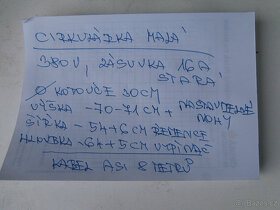 CIRKULÁRKA MALÁ
380V, ZÁSUVKA 16A
STARÁ
Ø KOTOUČE 30CM
VÝŠKA - 70-71CM + NASTAVITELNÉ
NOHY
ŠÍŘKA - 54+6CM ŘEMENICE
HLOUBKA - 64+5CM VYPÍNAČ
KABEL ASI 8 METRŮ